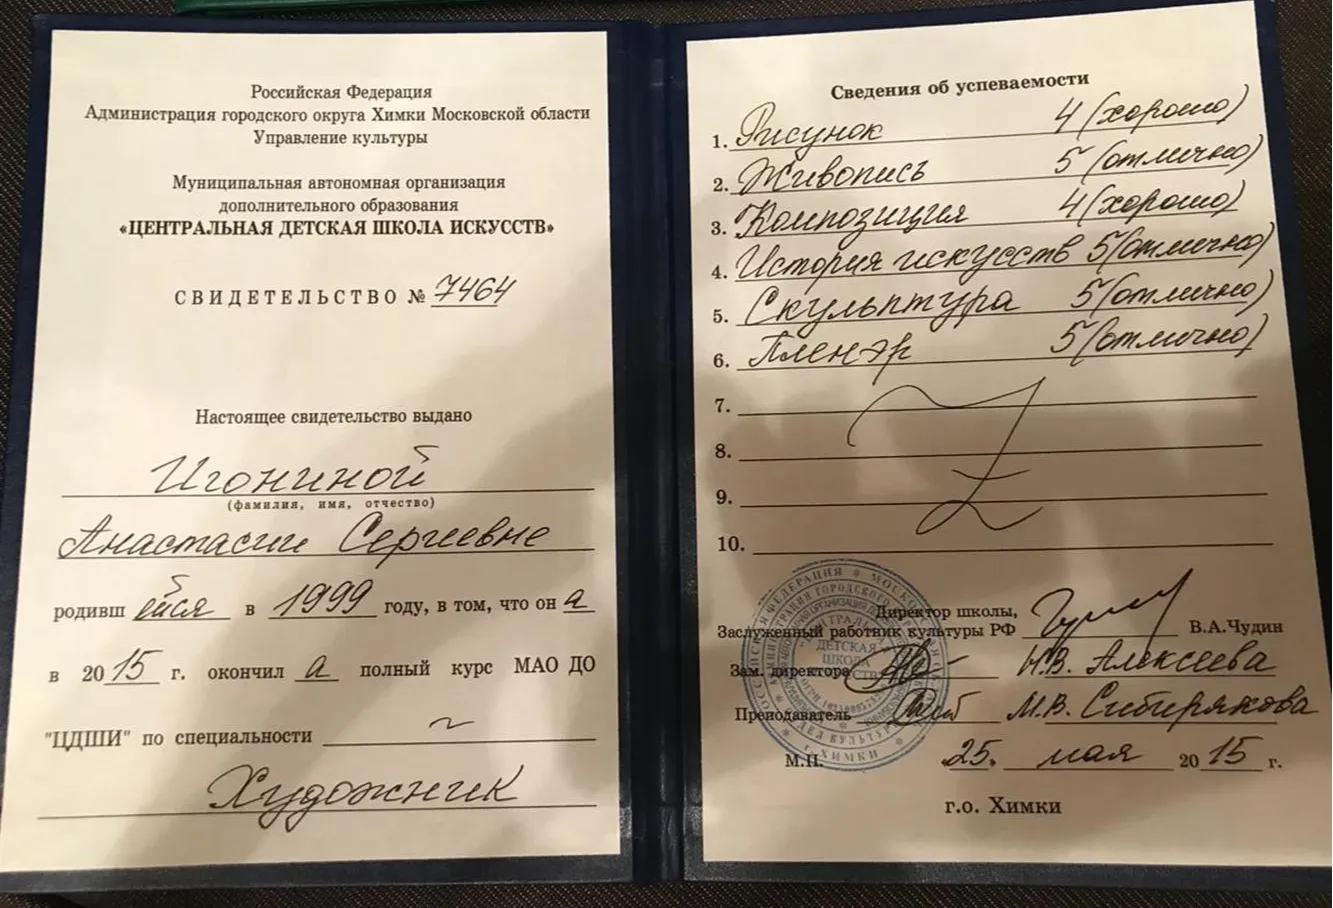 Российская Федерация
Администрация городского округа Химки Московской области
Управление культуры
Муниципальная автономная организация
дополнительного образования
«ЦЕНТРАЛЬНАЯ ДЕТСКАЯ ШКОЛА ИСКУССТВ»
СВИДЕТЕЛЬСТВО № 7464
Настоящее свидетельство выдано
Игониной
(фамилия, имя, отчество)
Анастасии Сергеевне
родивш ейся в 1999 году, в том, что он а
в 20 15 г. окончил а полный курс МАО ДО
"ЦДШИ" по специальности
Художник
Сведения об успеваемости
1. Рисунок 4 (хорошо)
2. Живопись 5 (отлично)
3. Композиция 4 (хорошо)
4. История искусств 5 (отлично)
5. Скульптура 5 (отлично)
6. Пленэр 5 (отлично)
7.
8.
9.
10.
Директор школы,
Заслуженный работник культуры РФ В.А.Чудин
Зам. директора Н.В. Алексеева
Преподаватель М.В. Сибирякова
М.П. 25. мая 20 15 г.
г.о. Химки